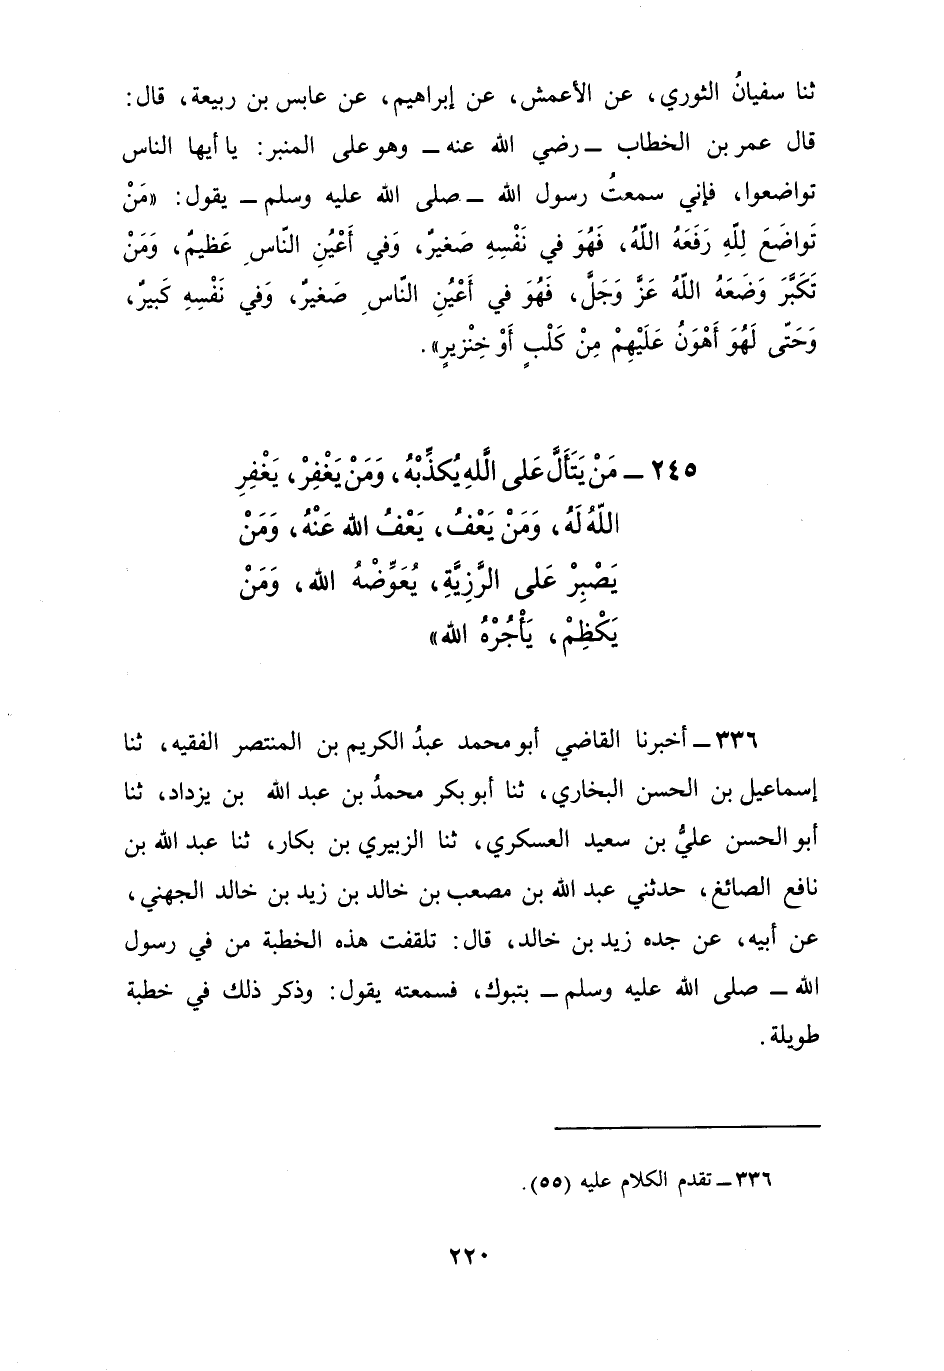 ثنا سفيانُ الثوري، عن الأعمش، عن إبراهيم، عن عابس بن ربيعة، قال:
قال عمر بن الخطاب ـ رضي الله عنه ـ وهو على المنبر: يا أيها الناس
تواضعوا، فإني سمعتُ رسول الله ـ صلى الله عليه وسلم ـ يقول: «مَنْ
تَواضَعَ لِلّهِ رَفَعَهُ اللّهُ، فَهُوَ في نَفْسِهِ صَغيرٌ، وَفي أَعْيُنِ النّاسِ عَظيمٌ، وَمَنْ
تَكَبَّرَ وَضَعَهُ اللّهُ عَزَّ وَجَلَّ، فَهُوَ في أَعْيُنِ النّاسِ صَغيرٌ، وَفي نَفْسِهِ كَبيرٌ،
وَحَتّى لَهُوَ أَهْوَنُ عَلَيْهِمْ مِنْ كَلْبٍ أَوْ خِنْزيرٍ».
٢٤٥ ـ مَنْ يَتَأَلَّ عَلى اللَّهِ يُكَذِّبْهُ، وَمَنْ يَغْفِرْ، يَغْفِرِ
اللّهُ لَهُ، وَمَنْ يَعْفُ، يَعْفُ الله عَنْهُ، وَمَنْ
يَصْبِرْ عَلى الرَّزِيَّةِ، يُعَوِّضْهُ الله، وَمَنْ
يَكْظِمْ، يَأْجُرْهُ الله»
٣٣٦ ـ أخبرنا القاضي أبو محمد عبدُ الكريم بن المنتصر الفقيه، ثنا
إسماعيل بن الحسن البخاري، ثنا أبو بكر محمدُ بن عبد الله بن يزداد، ثنا
أبو الحسن عليُّ بن سعيد العسكري، ثنا الزبيري بن بكار، ثنا عبد الله بن
نافع الصائغ، حدثني عبد الله بن مصعب بن خالد بن زيد بن خالد الجهني،
عن أبيه، عن جده زيد بن خالد، قال: تلقفت هذه الخطبة من في رسول
الله ـ صلى الله عليه وسلم ـ بتبوك، فسمعته يقول: وذكر ذلك في خطبة
طويلة.
٣٣٦ ـ تقدم الكلام عليه (٥٥).
٢٢٠